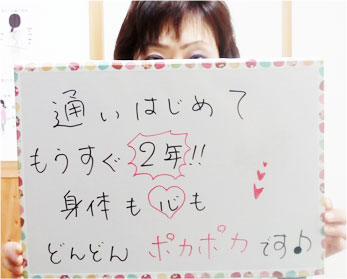 通いはじめて
もうすぐ2年!!
身体も心も
どんどん ポカポカです♪